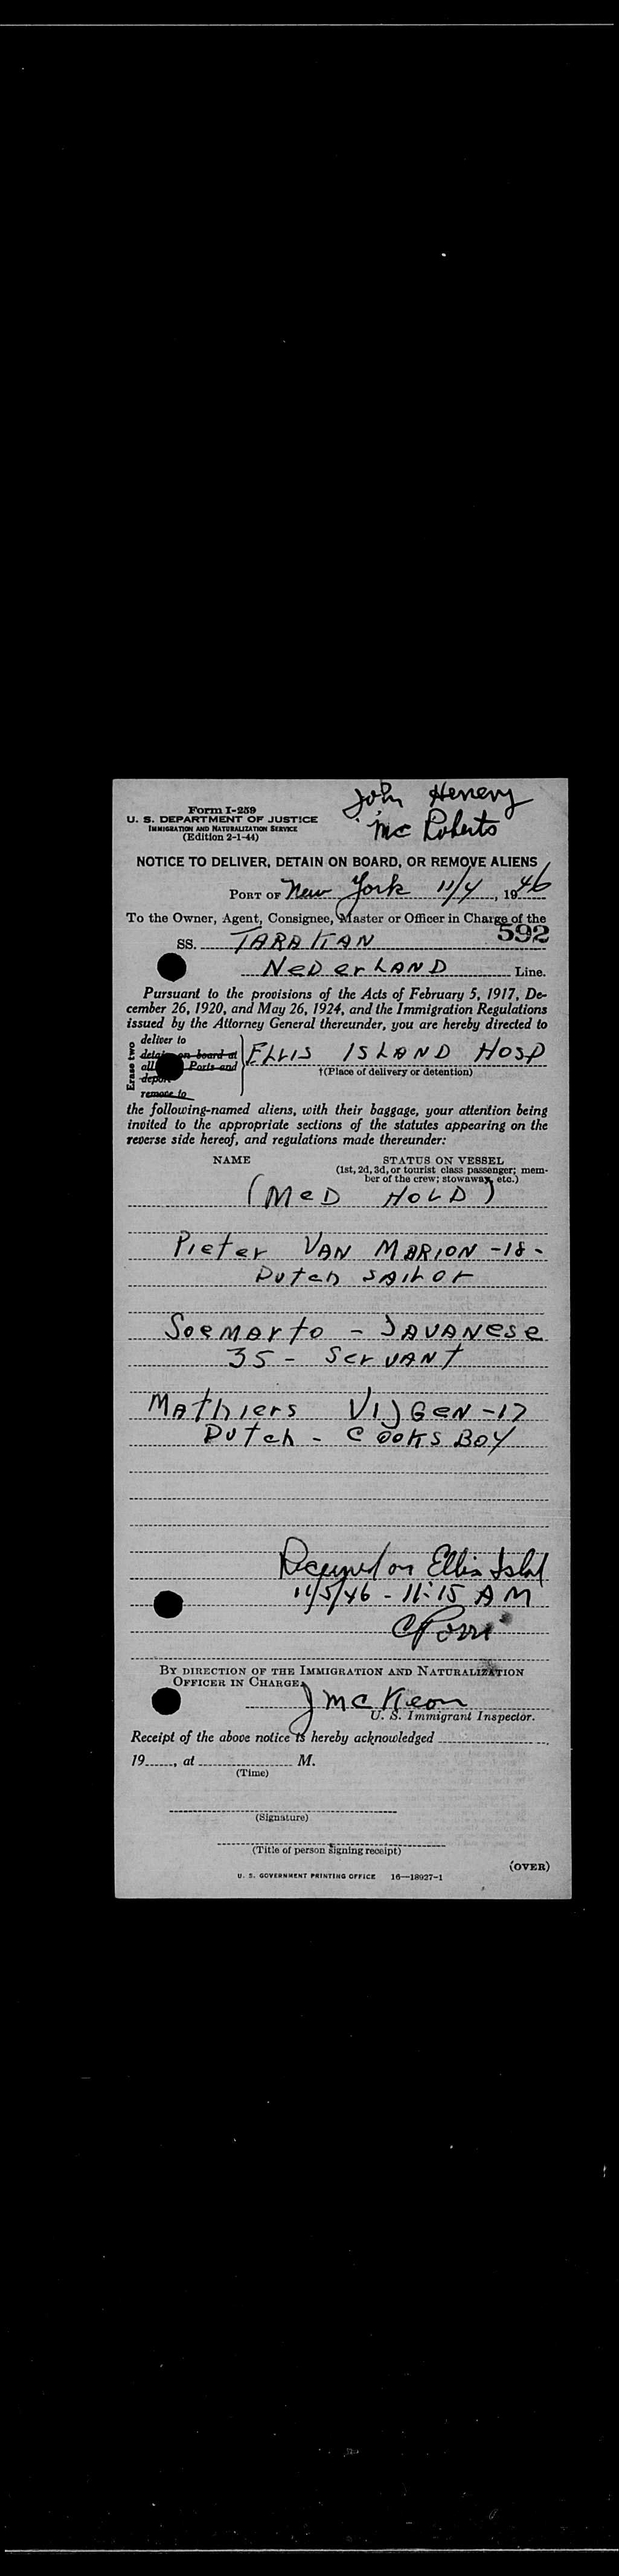 John Henery
Mc Roberts
Form I-259
U. S. DEPARTMENT OF JUSTICE
IMMIGRATION AND NATURALIZATION SERVICE
(Edition 2-1-44)
NOTICE TO DELIVER, DETAIN ON BOARD, OR REMOVE ALIENS
PORT OF New York 11/4, 1946
To the Owner, Agent, Consignee, Master or Officer in Charge of the
592
SS. TARAKAN
NeDerLAND Line.
Pursuant to the provisions of the Acts of February 5, 1917, De-
cember 26, 1920, and May 26, 1924, and the Immigration Regulations
issued by the Attorney General thereunder, you are hereby directed to
Erase two
deliver to
detain on board at
all Ports and
deport
remove to
ELLIS ISLAND HOSP
†(Place of delivery or detention)
the following-named aliens, with their baggage, your attention being
invited to the appropriate sections of the statutes appearing on the
reverse side hereof, and regulations made thereunder:
NAME STATUS ON VESSEL
(1st, 2d, 3d, or tourist class passenger; mem-
ber of the crew; stowaway, etc.)
(MeD HOLD)
Pieter VAN MARION -18-
Dutch SAILOR
SoeMArto - JAVANese
35 - SerVANT
MAthiers VIJGeN -17
Dutch - COOKS BOY
Received on Ellis Isld
11/5/46 - 11:15 AM
BY DIRECTION OF THE IMMIGRATION AND NATURALIZATION
OFFICER IN CHARGE,
J McKeon
U. S. Immigrant Inspector.
Receipt of the above notice is hereby acknowledged
19____, at ____ M.
(Time)
(Signature)
(Title of person signing receipt)
(OVER)
U. S. GOVERNMENT PRINTING OFFICE 16—18927-1